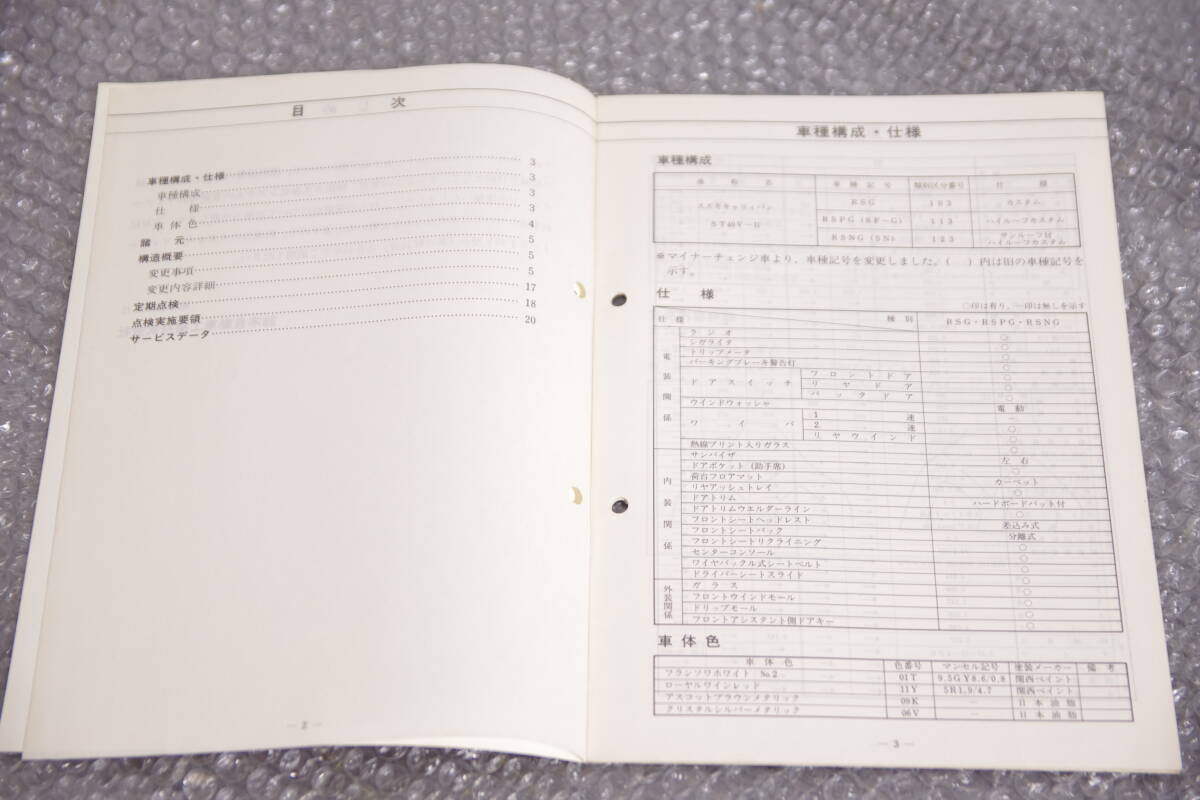 目 次
車種構成・仕様 3
車種構成 3
仕 様 3
車 体 色 3
諸 元 4
構造概要 5
変更事項 5
変更内容詳細 5
定期点検 17
点検実施要領 18
サービスデータ 20
— 2 —
車種構成・仕様
車種構成
通 称 名 車 種 記 号 類別区分番号 仕 様
スズキキャリイバン
ST40V-II
RSG 103 カスタム
RSPG (SF-G) 113 ハイルーフカスタム
RSNG (SN) 123 サンルーフ付ハイルーフカスタム
※マイナーチェンジ車より、車種記号を変更しました。( )内は旧の車種記号を
示す。
仕 様
○印は有り、—印は無しを示す
仕 様 種 別 RSG・RSPG・RSNG
電装関係
ラ ジ オ ○
シガライタ ○
トリップメータ ○
パーキングブレーキ警告灯 ○
ドアスイッチ フロントドア ○
リヤドア ○
バックドア ○
ウインドウォッシャ 電 動
ワ イ パ 1 速 —
2 速 ○
リヤウインド ○
熱線プリント入りガラス ○
内装関係
サンバイザ 左 右
ドアポケット (助手席) ○
荷台フロアマット カーペット
リヤアッシュトレイ ○
ドアトリム ハードボードパット付
ドアトリムウエルダーライン ○
フロントシートヘッドレスト 差込み式
フロントシートバック 分離式
フロントシートリクライニング ○
センターコンソール ○
ワイヤバックル式シートベルト ○
ドライバーシートスライド ○
外装関係
ガ ラ ス ○
フロントウインドモール ○
ドリップモール ○
フロントアシスタント側ドアキー ○
車 体 色
車 体 色 色番号 マンセル記号 塗装メーカー 備 考
フランソワホワイト No.2 01T 9.5GY8.6/0.8 関西ペイント
ローヤルワインレッド 31Y 5R1.9/4.7 関西ペイント
アスコットブラウンメタリック 09K — 日 本 油 脂
クリスタルシルバーメタリック 06V — 日 本 油 脂
— 3 —